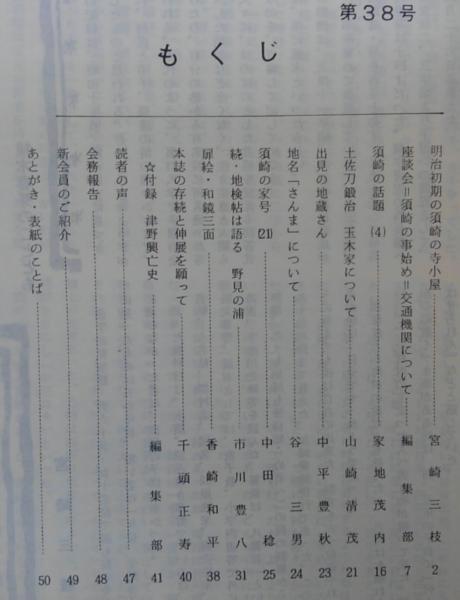 第38号
もくじ
明治初期の須崎の寺小屋 宮崎三枝 2
座談会＝須崎の事始め＝交通機関について 編集部 7
須崎の話題 (4) 家地茂内 16
土佐刀鍛治 玉木家について 山崎清茂 21
出見の地蔵さん 中平豊秋 23
地名「さんま」について 谷三男 24
須崎の家号 (21) 中田稔 25
続・地検帖は語る 野見の浦 市川豊八 31
扉絵・和鏡三面 香崎和平 38
本誌の存続と伸展を願って 千頭正寿 40
☆付録 津野興亡史 編集部 41
読者の声 47
会務報告 48
新会員のご紹介 49
あとがき・表紙のことば 50